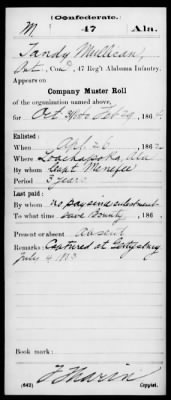 (Confederate.)
M 47 Ala.
Tandy Mullican,
Pvt., Co. , 47 Reg't Alabama Infantry.
Appears on
Company Muster Roll
of the organization named above,
for Oct 31 to Feb 29, 1864.
Enlisted:
When Apl 26, 1862.
Where Loachapoka, Ala
By whom Capt Menefee
Period 3 years
Last paid:
By whom no pay since enlistment
To what time save Bounty, 186 .
Present or absent Absent
Remarks: Captured at Gettysburg
July 4 1863
Book mark:
(642) Copyist.